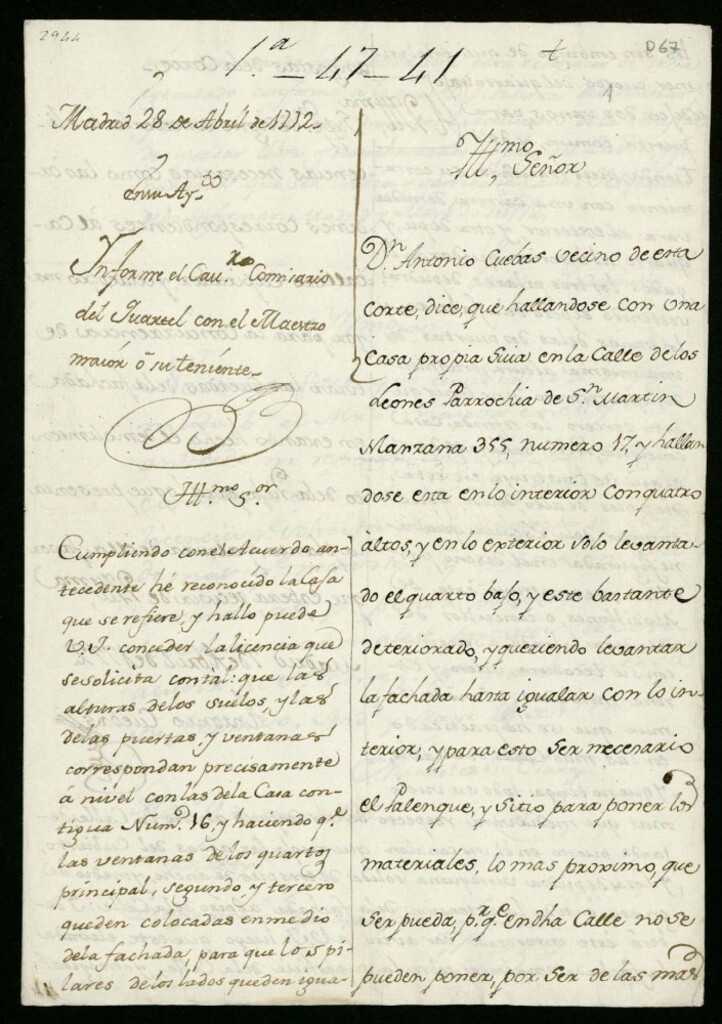 2944
1.ª - 47 - 41
t
D67
1
Madrid 28 de Abril de 1772.
en su Ay.to
Informe el Cav.ro Comisario
del Quartel con el Maestro
maior ó su teniente.
Ill.mo S.or
Cumpliendo con el Acuerdo an-
tecedente hé reconocido la Casa
que se refiere, y hallo puede
V.I. conceder la licencia que
se solicita con tàl: que las
alturas de los suelos, y las
de las puertas y ventanas
correspondan precisamente
á nivel con las de la Casa con-
tigua Num.º 16, y haciendo q.e
las ventanas de los quartos
principal, segundo y tercero
queden colocadas en medio
de la fachada, para que los pi-
lares de los lados queden igua-
Ill.mo Señor
D.n Antonio Cuebas vecino de esta
Corte, dice, que hallandose con una
Casa propia Suia en la Calle de los
Leones Parrochia de S.n Martin
Manzana 355, numero 17, y hallan
dose esta en lo interior con quatro
altos, y en lo exterior solo levanta-
do el quarto bajo, y este bastante
deteriorado, y queriendo levantar
la fachada hasta igualar con lo in-
terior, y para esto ser necesario
el Palenque, y Sitio para poner los
materiales, lo mas proximo, que
ser pueda, p.r q.e en dha Calle no se
pueden poner, por ser de las mas